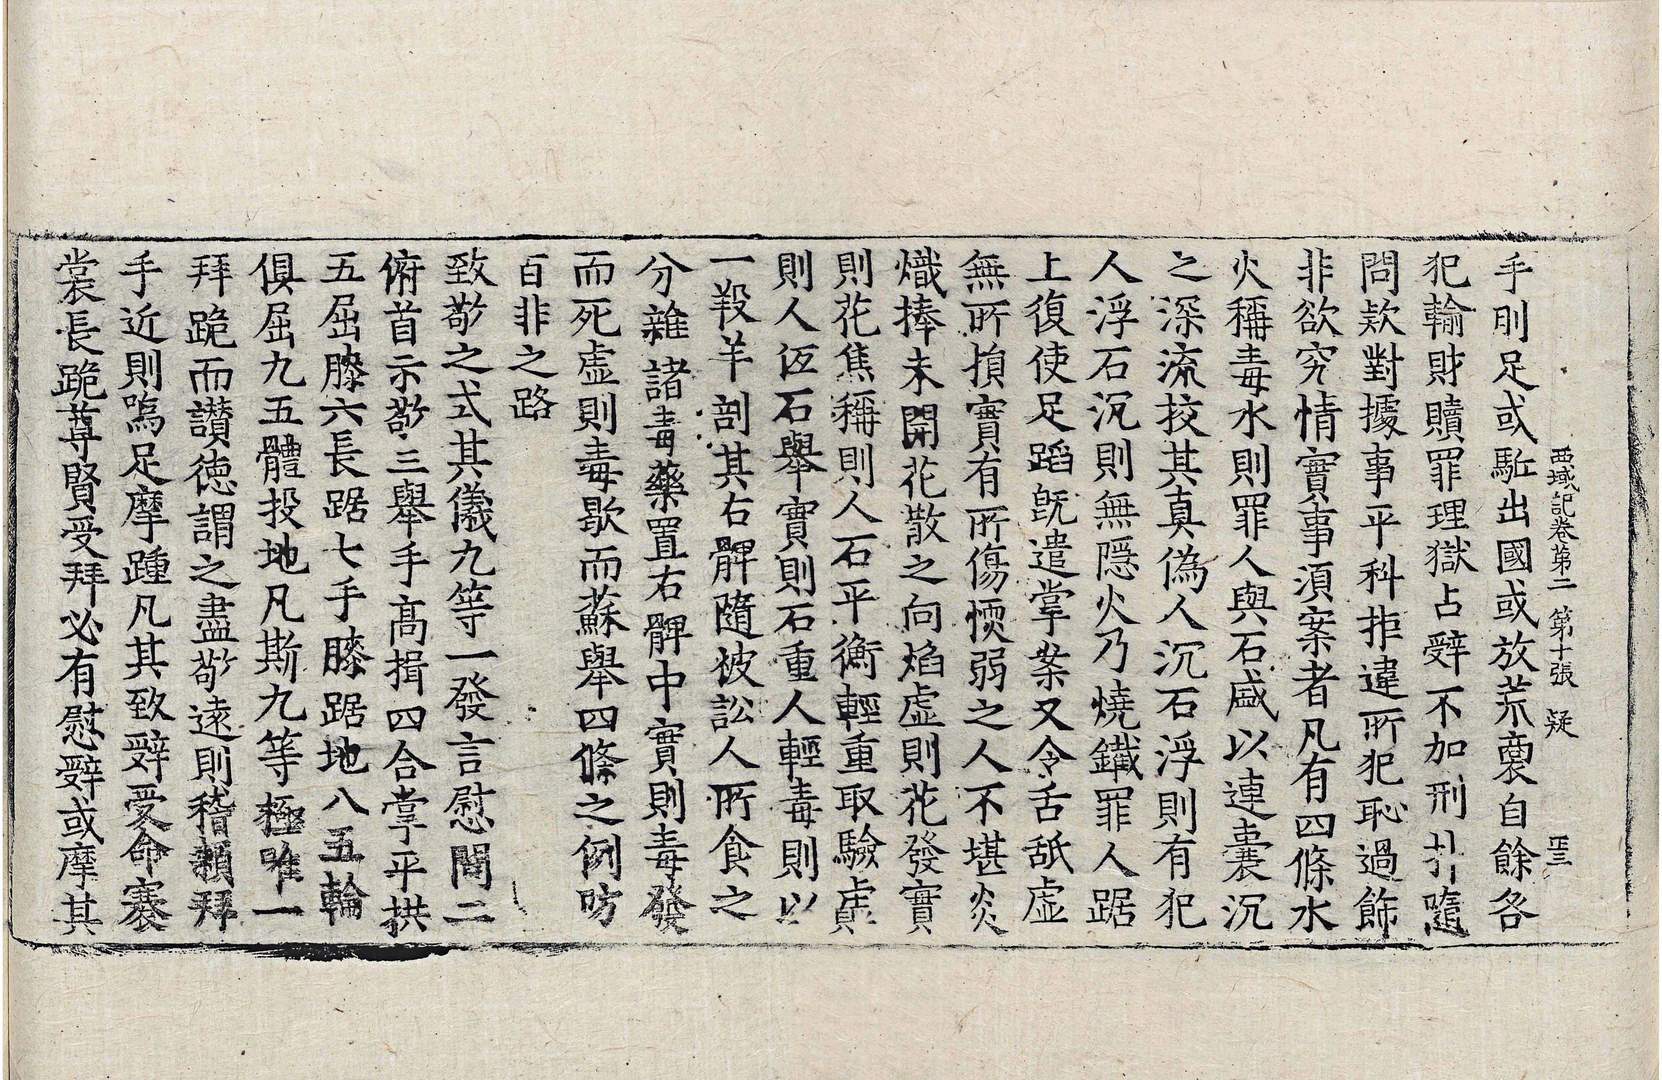 西域記卷第二 第十張 疑
手刖足或駈出國或放荒裔自餘各
犯輸財贖罪理獄占辤不加刑扑隨
問欵對據事平科拒違所犯恥過飾
非欲究情實事湏案者凡有四條水
火稱毒水則罪人與石盛以連囊沉
之深流挍其真偽人沉石浮則有犯
人浮石沉則無隠火乃燒鐵罪人踞
上復使足蹈旣遣掌案又令舌舐虛
無所損實有所傷愞弱之人不堪炎
熾捧未開花散之向焰虛則花發實
則花焦稱則人石平衡輕重取驗虛
則人伍石舉實則石重人輕毒則以
一羖羊剖其右髀隨被訟人所食之
分雜諸毒藥置右髀中實則毒發
而死虛則毒歇而蘇舉四條之例防
百非之路
致敬之式其儀九等一發言慰問二
俯首示敬三舉手髙揖四合掌平拱
五屈膝六長踞七手膝踞地八五輪
俱屈九五體投地凡斯九等極唯一
拜跪而讃德謂之盡敬遠則稽顙拜
手近則嗚足摩踵凡其致辤受命褰
裳長跪尊賢受拜必有慰辤或摩其